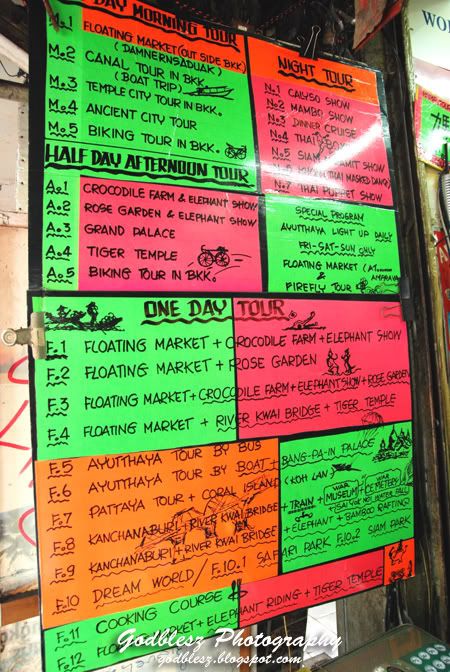 DAY MORNING TOUR
M.1 FLOATING MARKET (OUT SIDE BKK)
(DAMNERNSADUAK)
M.2 CANAL TOUR IN BKK
(BOAT TRIP)
M.3 TEMPLE CITY TOUR IN BKK.
M.4 ANCIENT CITY TOUR
M.5 BIKING TOUR IN BKK.
NIGHT TOUR
N.1 CALYSO SHOW
N.2 MAMBO SHOW
N.3 DINNER CRUISE
N.4 THAI
N.5 SIAM SHOW
(THAI MASKED DANCE)
N.7 THAI PUPPET SHOW
HALF DAY AFTERNOON TOUR
A.1 CROCODILE FARM & ELEPHANT SHOW
A.2 ROSE GARDEN & ELEPHANT SHOW
A.3 GRAND PALACE
A.4 TIGER TEMPLE
A.5 BIKING TOUR IN BKK.
SPECIAL PROGRAM
AYUTTHAYA LIGHT UP DAILY
FRI-SAT-SUN ONLY
FLOATING MARKET (AT
& FIREFLY TOUR
ONE DAY TOUR
F.1 FLOATING MARKET + CROCODILE FARM + ELEPHANT SHOW
F.2 FLOATING MARKET + ROSE GARDEN
F.3 FLOATING MARKET + CROCODILE FARM + ELEPHANT SHOW + ROSE GARDEN
F.4 FLOATING MARKET + RIVER KWAI BRIDGE + TIGER TEMPLE
F.5 AYUTTHAYA TOUR BY BUS
F.6 AYUTTHAYA TOUR BY BOAT + BANG-PA-IN PALACE
F.7 PATTAYA TOUR + CORAL ISLAND (KOH LAN)
F.8 KANCHANABURI + RIVER KWAI BRIDGE + TRAIN + WAR MUSEUM + WAR CEMETERY
F.9 KANCHANABURI + RIVER KWAI BRIDGE + ELEPHANT + BAMBOO RAFTING
F.10 DREAM WORLD / F.10.1 SAFARI PARK F.10.2 SIAM PARK
F.11 COOKING COURSE
F.12 MARKET + ELEPHANT RIDING + TIGER TEMPLE
Godblesz Photography
godblesz.blogspot.com